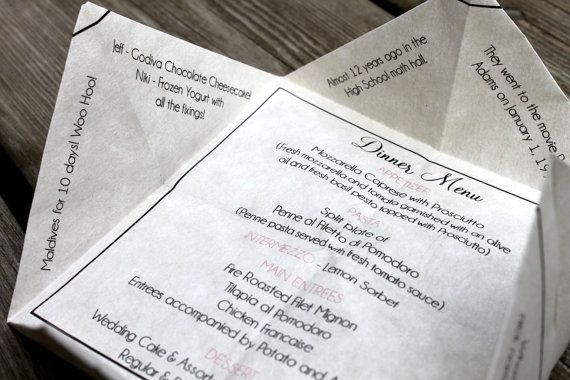 Maldives for 10 days! Woo Hoo!
Jeff - Godiva Chocolate Cheesecake!
Niki - Frozen Yogurt with
all the fixings!
Almost 12 years ago in the
High School math hall.
They went to the movies
Adams on January 1,
Dinner Menu
APPETIZER
Mozzarella Caprese with Prosciutto
(Fresh mozzarella and tomato garnished with an olive
oil and fresh basil pesto topped with Prosciutto)
PASTA
Split plate of
Penne al Filetto di Pomodoro
(Penne pasta served with fresh tomato sauce)
INTERMEZZO - Lemon Sorbet
MAIN ENTREES
Fire Roasted Filet Mignon
Tilapia al Pomodoro
Chicken Francaise
Entrees accompanied by Potato and
DESSERT
Wedding Cake &
Regular &